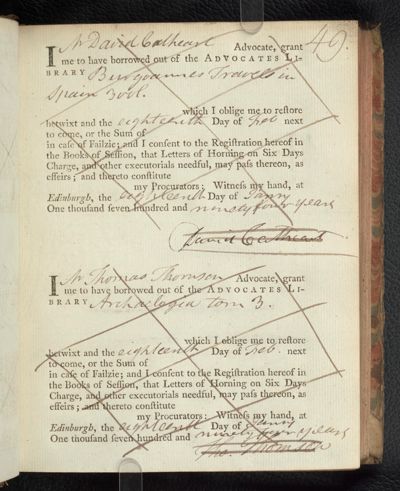 49.
I Mr David Cathcart Advocate, grant
me to have borrowed out of the ADVOCATES LI-
BRARY Burgoannes Travels in
Spain 3 vol.
which I oblige me to reſtore
betwixt and the eighteenth Day of Feb next
to come, or the Sum of
in caſe of Failzie; and I conſent to the Regiſtration hereof in
the Books of Seſſion, that Letters of Horning on Six Days
Charge, and other executorials needful, may paſs thereon, as
effeirs; and thereto conſtitute
my Procurators: Witneſs my hand, at
Edinburgh, the eighteenth Day of Janry
One thouſand ſeven hundred and ninety four years
David Cathcart
I Mr Thomas Thomson Advocate, grant
me to have borrowed out of the ADVOCATES LI-
BRARY Archaelogia tom 3.
which I oblige me to reſtore
betwixt and the eighteenth Day of Feb. next
to come, or the Sum of
in caſe of Failzie; and I conſent to the Regiſtration hereof in
the Books of Seſſion, that Letters of Horning on Six Days
Charge, and other executorials needful, may paſs thereon, as
effeirs; and thereto conſtitute
my Procurators: Witneſs my hand, at
Edinburgh, the eighteenth Day of Janry
One thouſand ſeven hundred and ninety four years
Tho. Thomson